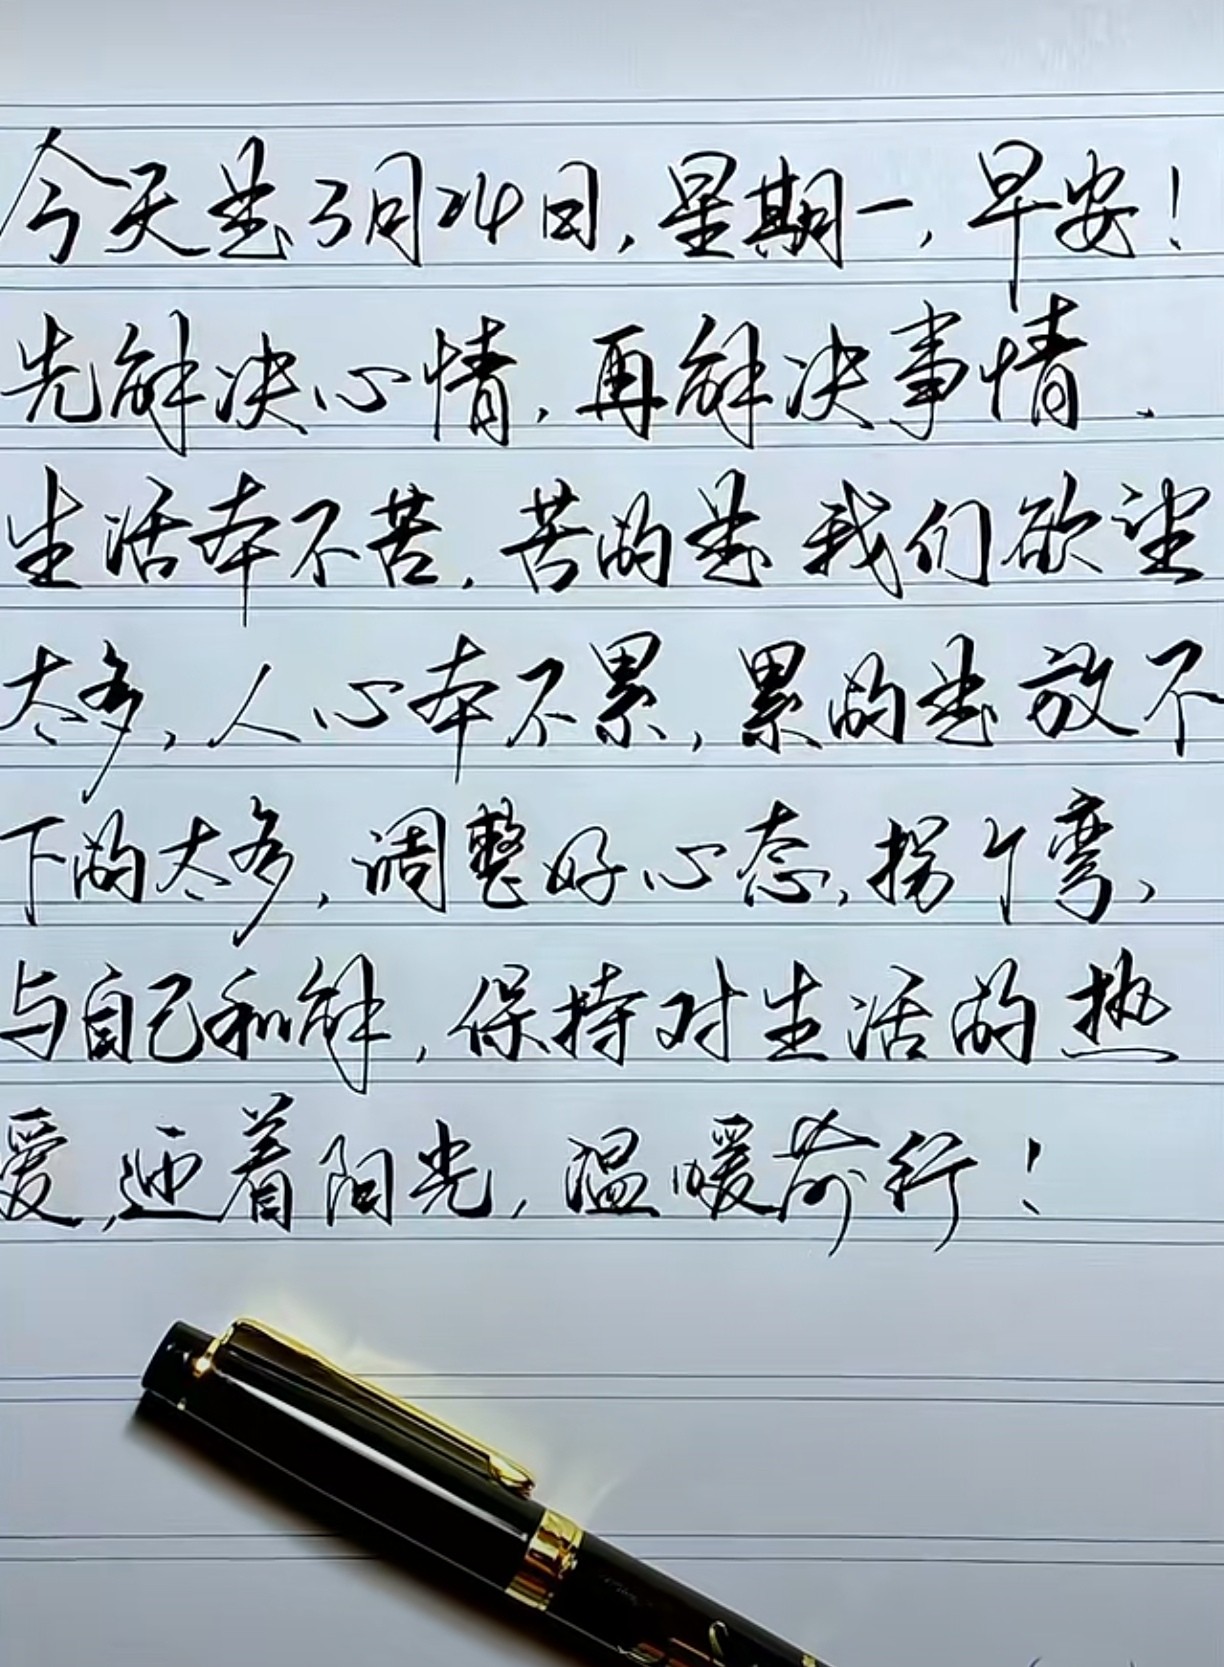 今天是3月24日,星期一,早安!
先解决心情,再解决事情.
生活本不苦,苦的是我们欲望
太多,人心本不累,累的是放不
下的太多,调整好心态,拐个弯,
与自己和解,保持对生活的热
爱,迎着阳光,温暖前行!